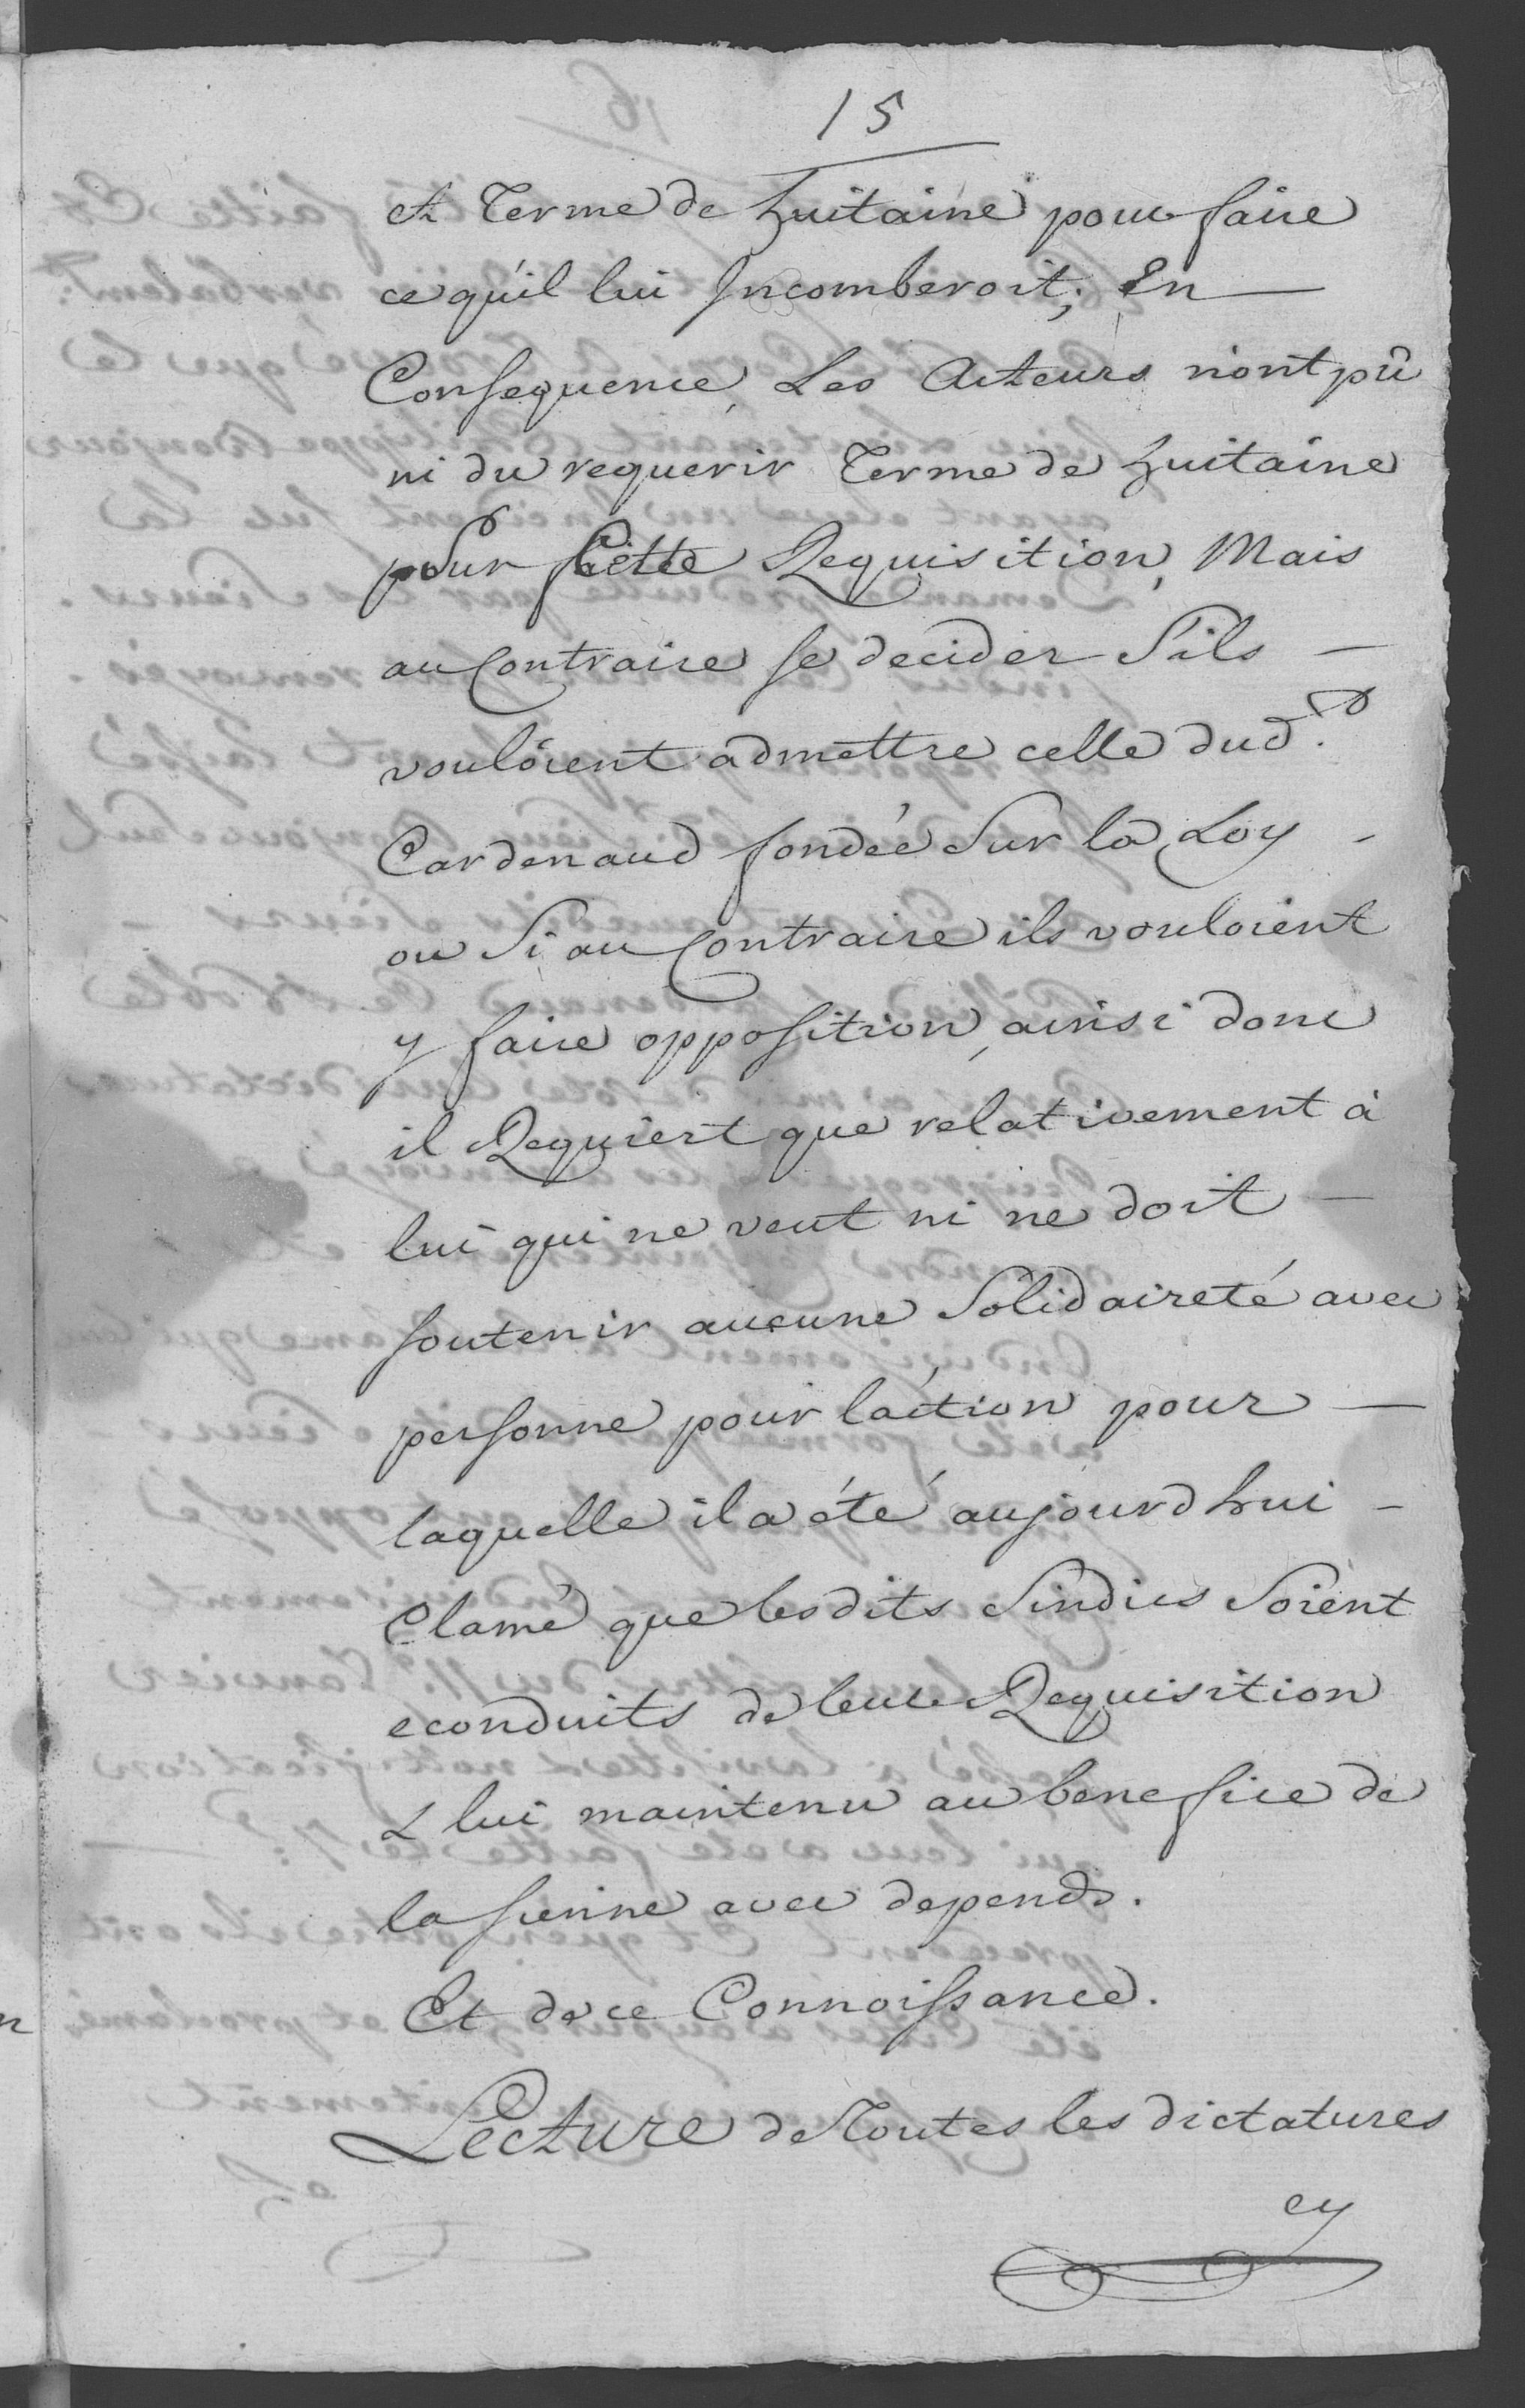 15
et Terme de huitaine pour faire
ce qu'il lui Incomberoit; En
Consequence, Les Acteurs n'ont pû
ni du requerir Terme de huitaine
pour cette Requisition, Mais
au Contraire se decider S'ils
vouloient admettre celle dud.t
Cardenaud fondée Sur la Loy
ou Si au Contraire ils vouloient
y faire opposition, ainsi donc
il Requiert que relativement à
lui qui ne veut ni ne doit
soutenir aucune Solidaireté avec
personne pour l'action pour
laquelle il a été aujourd'hui
Clamé que lesdits Sindics Soient
econduits de leur Requisition
& lui maintenu au benefice de
la sienne avec depends.
Et de ce Connoissance.
Lecture de Toutes les dictatures
cy